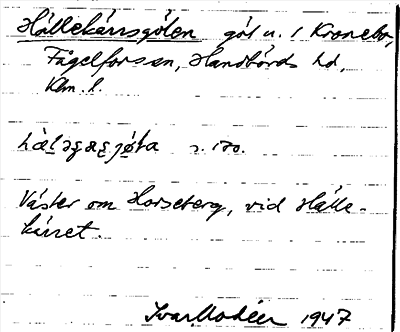 Hällekärrsgölen göl u. / Kronebo,
Fågelforsen, Handbörds hd,
Klm. l.
s. 170.
Väster om Horseberg, vid Hälle-
kärret.
Ivar Modéer 1947